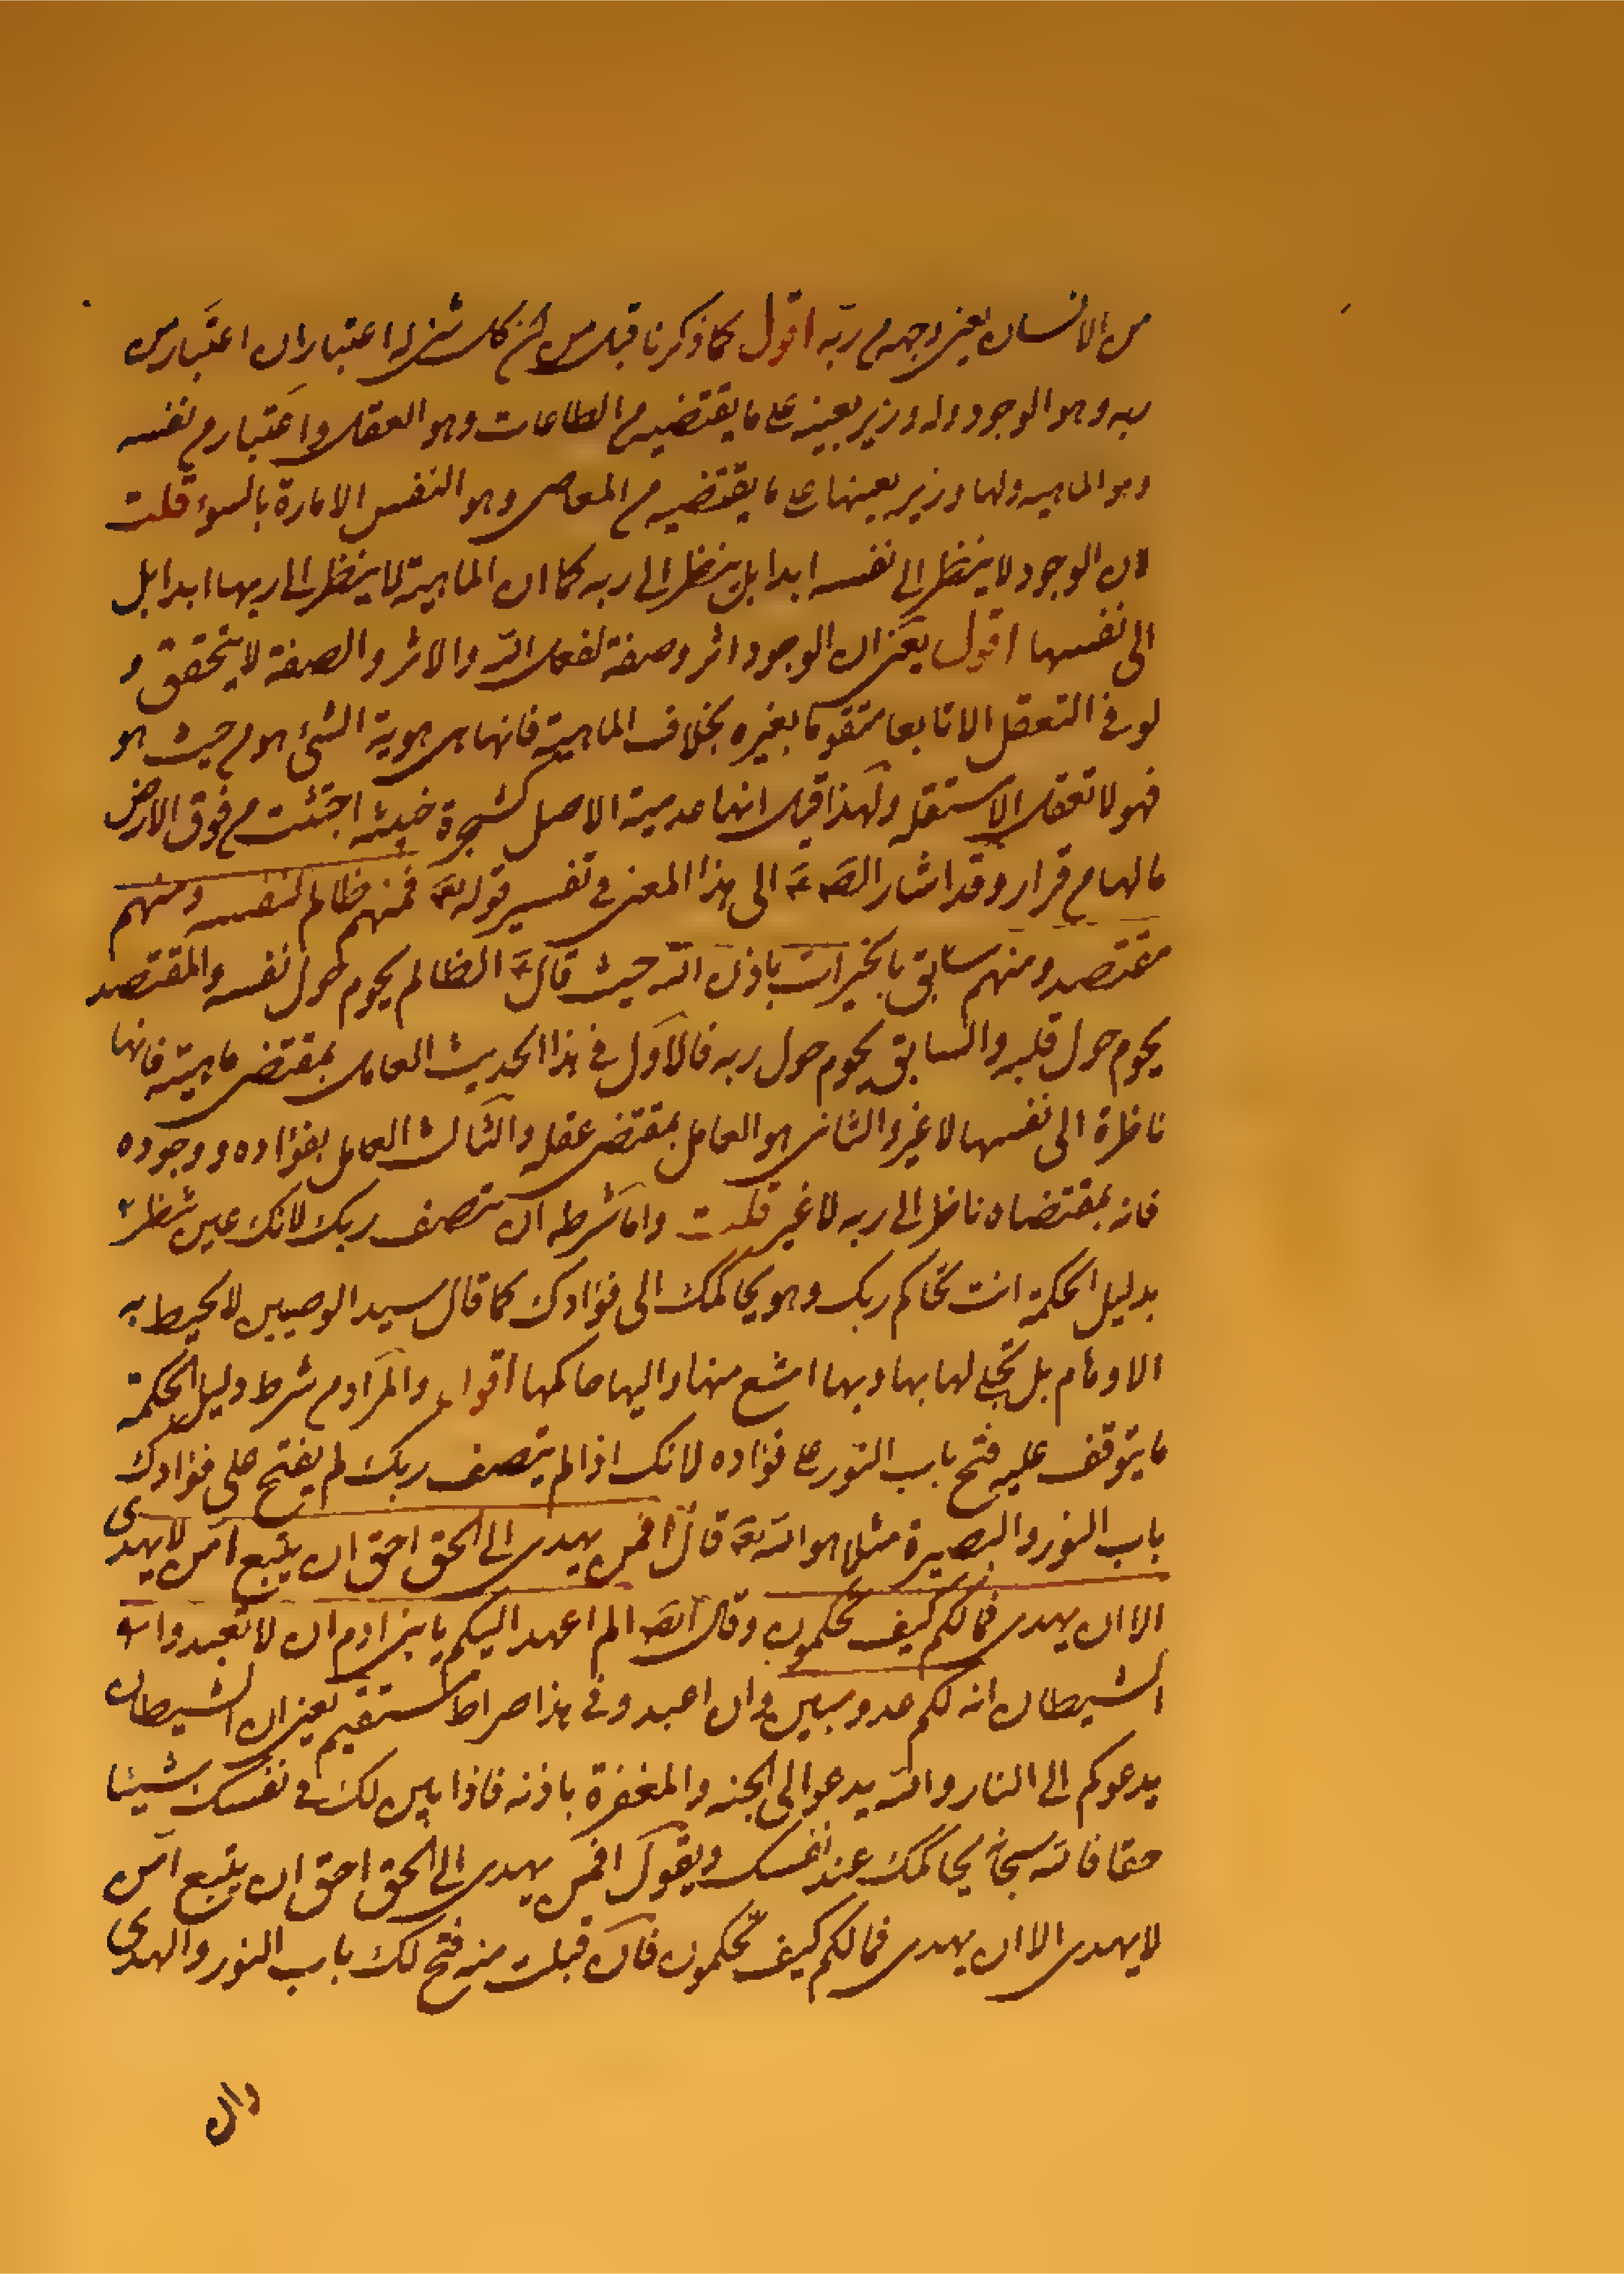 من الانسان يعنى وجهه من ربّه اقول كما ذكرنا قبل من ان كل شئ له اعتباران اعتبار من
ربه وهو الوجود وله وزير يعينه على ما يقتضيه من الطاعات وهو العقل واعتبار من نفسه
وهو الماهيه ولها وزير يعينها على ما يقتضيه من المعاصى وهو النفس الامارة بالسوء قلت
لان الوجود لا ينظر الى نفسه ابدا بل ينظر الى ربه كما ان الماهية لا ينظر الى ربها ابدا بل
الى نفسها اقول يعنى ان الوجود اثر وصفة لفعل الله والاثر والصفة لا يتحقق و
لو فى التعقل الا تابعا متقوما بغيره بخلاف الماهية فانها هى هوية الشئ هو من حيث هو
فهو لا تعقل الا مستقله ولهذا قيل انها عدمية الاصل كشجرة خبيثه اجتثت من فوق الارض
ما لها من قرار وقد اشار الصّ ع الى هذا المعنى فى تفسير قوله تع فمنهم ظالم لنفسه ومنهم
مقتصد ومنهم سابق بالخيرات باذن الله حيث قال ع الظالم يحوم حول نفسه والمقتصد
يحوم حول قلبه والسابق يحوم حول ربه فالاول فى هذا الحديث العامل بمقتضى ماهيته فانها
ناظرة الى نفسها لا غير والثانى هو العامل بمقتضى عقله والثالث العامل بفؤاده ووجوده
فانه بمقتضاه ناظر الى ربه لا غير قلت واما شرطه ان تنصف ربك لانك حين تنظر
بدليل الحكمة انت تحاكم ربك وهو يحاكمك الى فؤادك كما قال سيد الوصيين لا تحيط به
الاوهام بل تجلى لها بها وبها امتنع منها واليها حاكمها اقول والمراد من شرط دليل الحكمة
ما يتوقف عليه فتح باب النور على فؤاده لانك اذا لم ينصف ربك لم يفتح على فؤادك
باب النور والبصيرة مثلا هو الله تع قال افمن يهدى الى الحق احق ان يتبع امن لا يهدى
الا ان يهدى فما لكم كيف تحكمون وقال ايضا الم اعهد اليكم يا بنى ادم ان لا تعبدوا
الشيطان انه لكم عدو مبين وان اعبدونى هذا صراط مستقيم يعنى ان الشيطان
يدعوكم الى النار والله يدعو الى الجنه والمغفرة باذنه فاذا بين لك فى نفسك شيئا
حقا فالله سبحانه يحاكمك عند نفسك ويقول افمن يهدى الى الحق احق ان يتبع امن
لا يهدى الا ان يهدى فما لكم كيف تحكمون فان قبلت منه فتح لك باب النور والهدى
وان